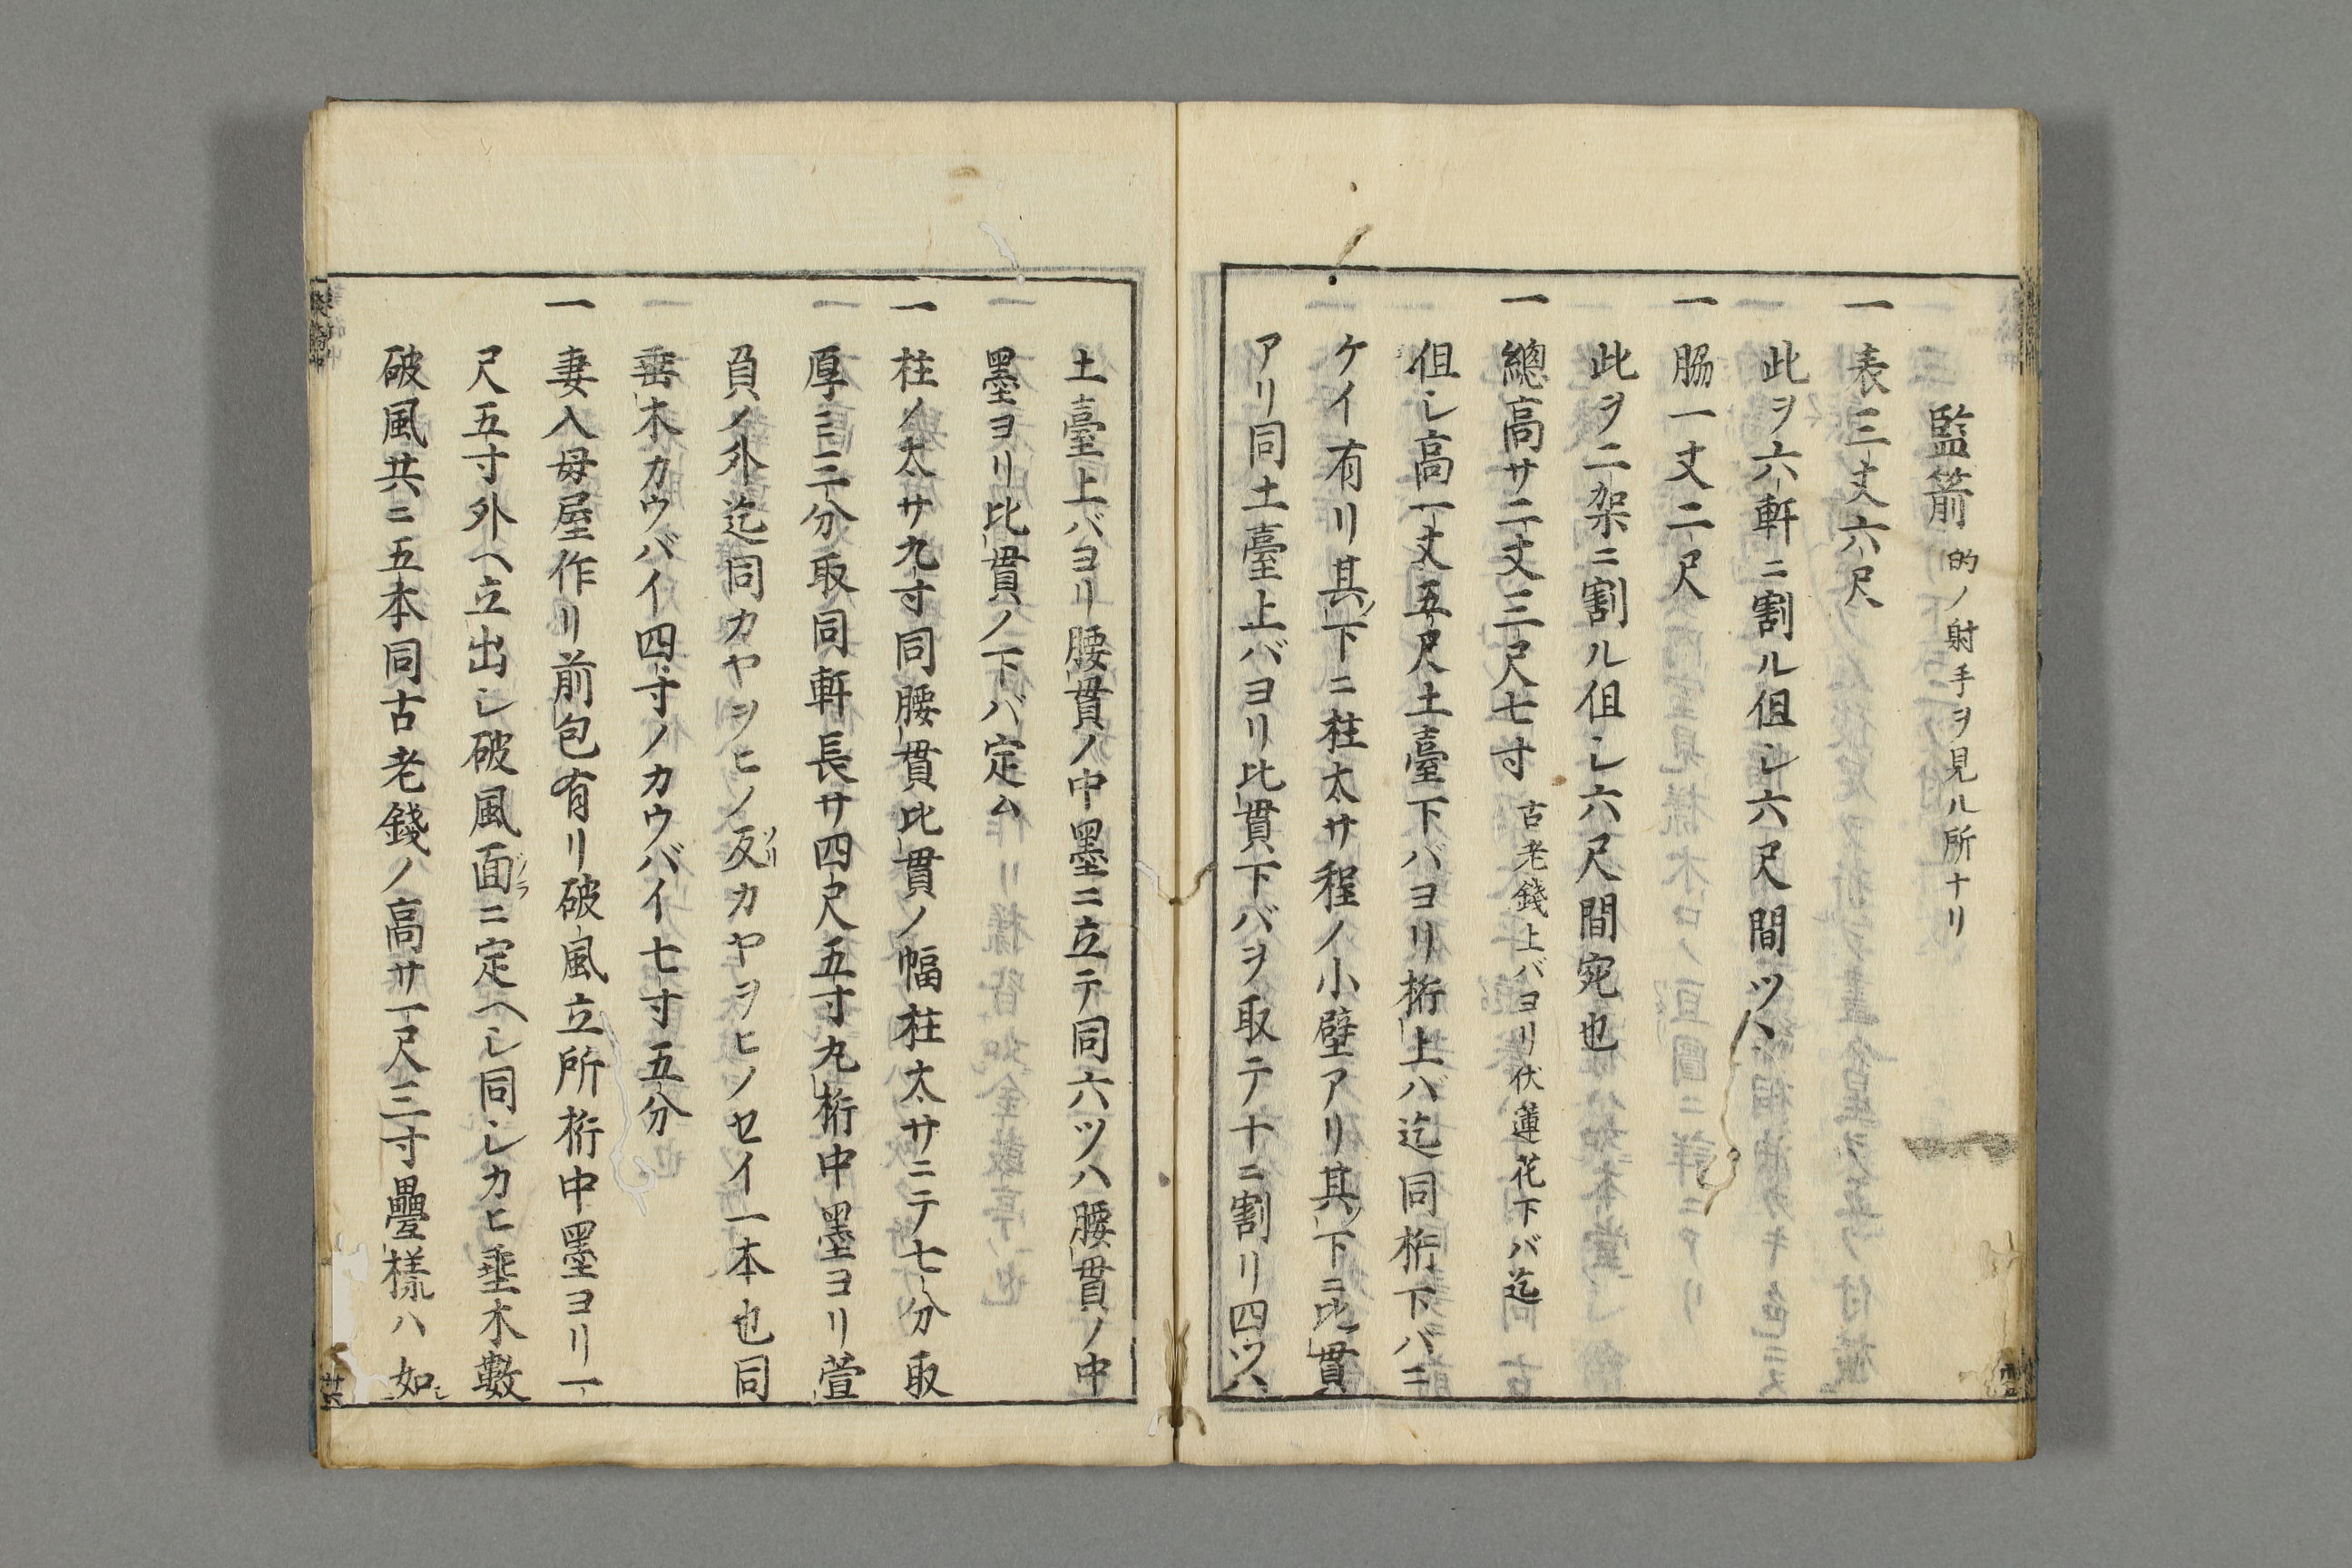 監箭 的ノ射手ヲ見ル所ナリ
一 表三丈六尺
此ヲ六軒ニ割ル但シ六尺間ツヽ
一 脇一丈二尺
此ヲ二架ニ割ル但シ六尺間宛也
一 總高サ二丈三尺七寸 古老錢上バヨリ伏蓮花下バ迄
但シ高一丈五尺土臺下バヨリ桁上バ迄同桁下バニ
ケイ有リ其ノ下ニ柱太サ程ノ小壁アリ其ノ下ニ比貫
アリ同土臺上バヨリ比貫下バヲ取テ十ニ割リ四ツハ
土臺上バヨリ腰貫ノ中墨ニ立テ同六ツハ腰貫ノ中
墨ヨリ比貫ノ下バ定ム
一 柱ノ太サ九寸同腰貫比貫ノ幅柱太サニテ七分取
厚ニ三分取同軒長サ四尺五寸丸桁中墨ヨリ萱
負ノ外迄同カヤヲヒノ反ソリカヤヲヒノセイ一本也同
垂木カウバイ四寸ノカウバイ七寸五分
一 妻入母屋作リ前包有リ破風立所桁中墨ヨリ一
尺五寸外ヘ立出シ破風面ニ定ヘシ同シカヒ垂木數
破風共ニ五本同古老錢ノ高サ一尺三寸疊樣ハ如シ